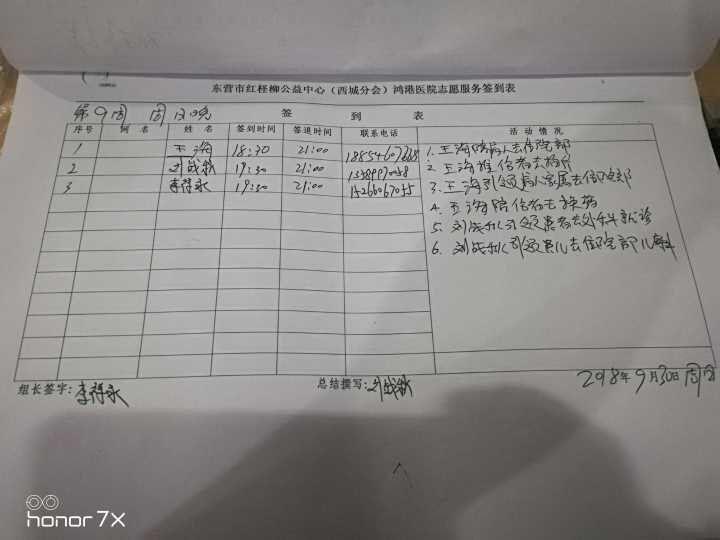 东营市红柽柳公益中心（西城分会）鸿港医院志愿服务签到表
第9周 周日晚 签 到 表
序号 网 名 姓 名 签到时间 签退时间 联系电话 活 动 情 况
1 王海 18:30 21:00
2 刘战秋 19:30 21:00
3 李得永 19:30 21:00 15266067055
1. 王海陪病人去住院部
2 王海推伤者去病房
3. 王海引领病人家属去住院部
4. 王海陪伤者去换药
5. 刘战秋引领患者去外科就诊
6. 刘战秋引领患儿去住院部儿科
组长签字：李得永 总结撰写：刘战秋 2018年9月30日周日
honor 7X